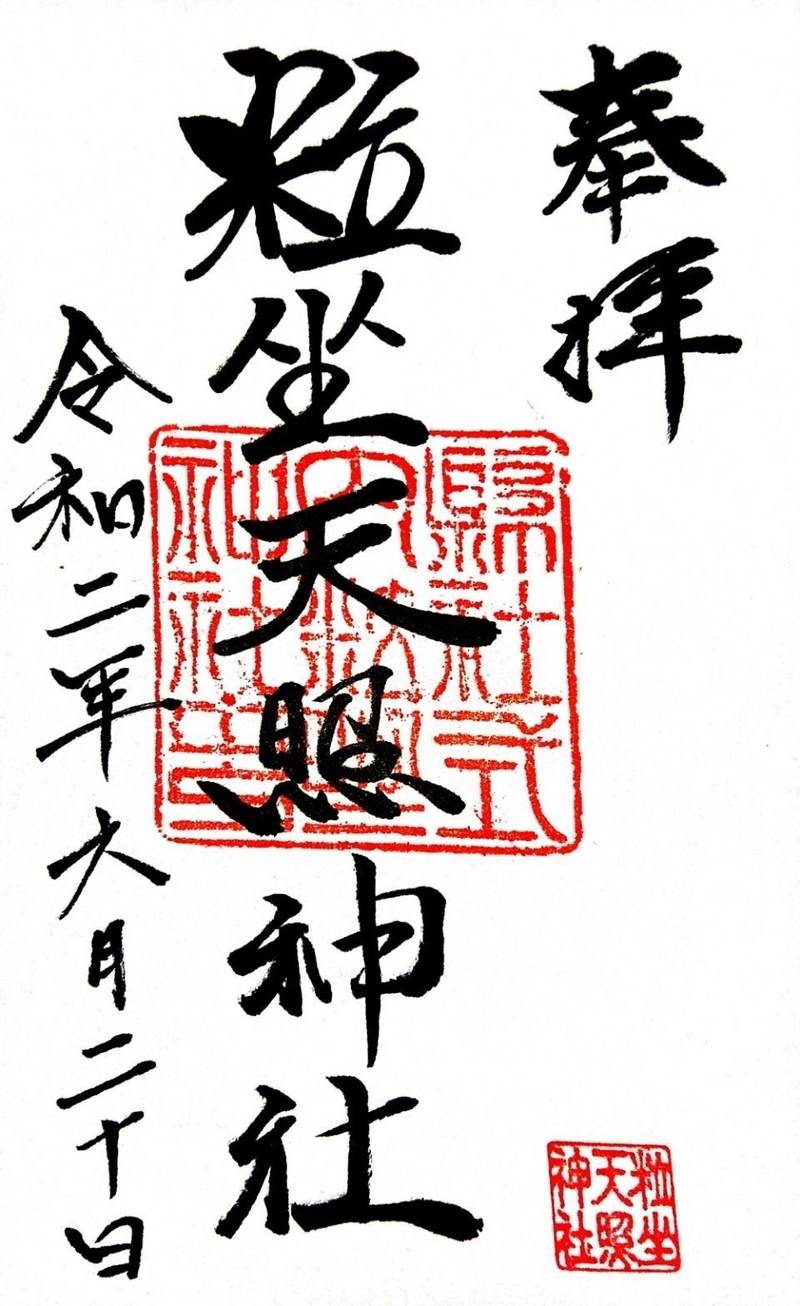 奉拝
粒坐天照神社
令和二年六月二十日
縣社式
神社
粒坐
天照
神社